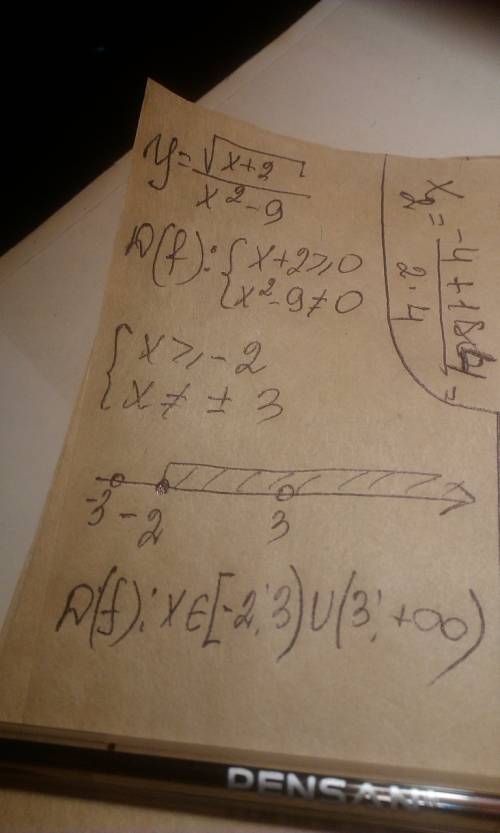 y = √(x+2) / (x² - 9)
D(f): { x+2 ≥ 0
{ x² - 9 ≠ 0
{ x ≥ -2
{ x ≠ ± 3
-3 -2 3
D(f): x ∈ [-2; 3) ∪ (3; +∞)
x₂ = (-4 + 18
2·4
=
PENSAN